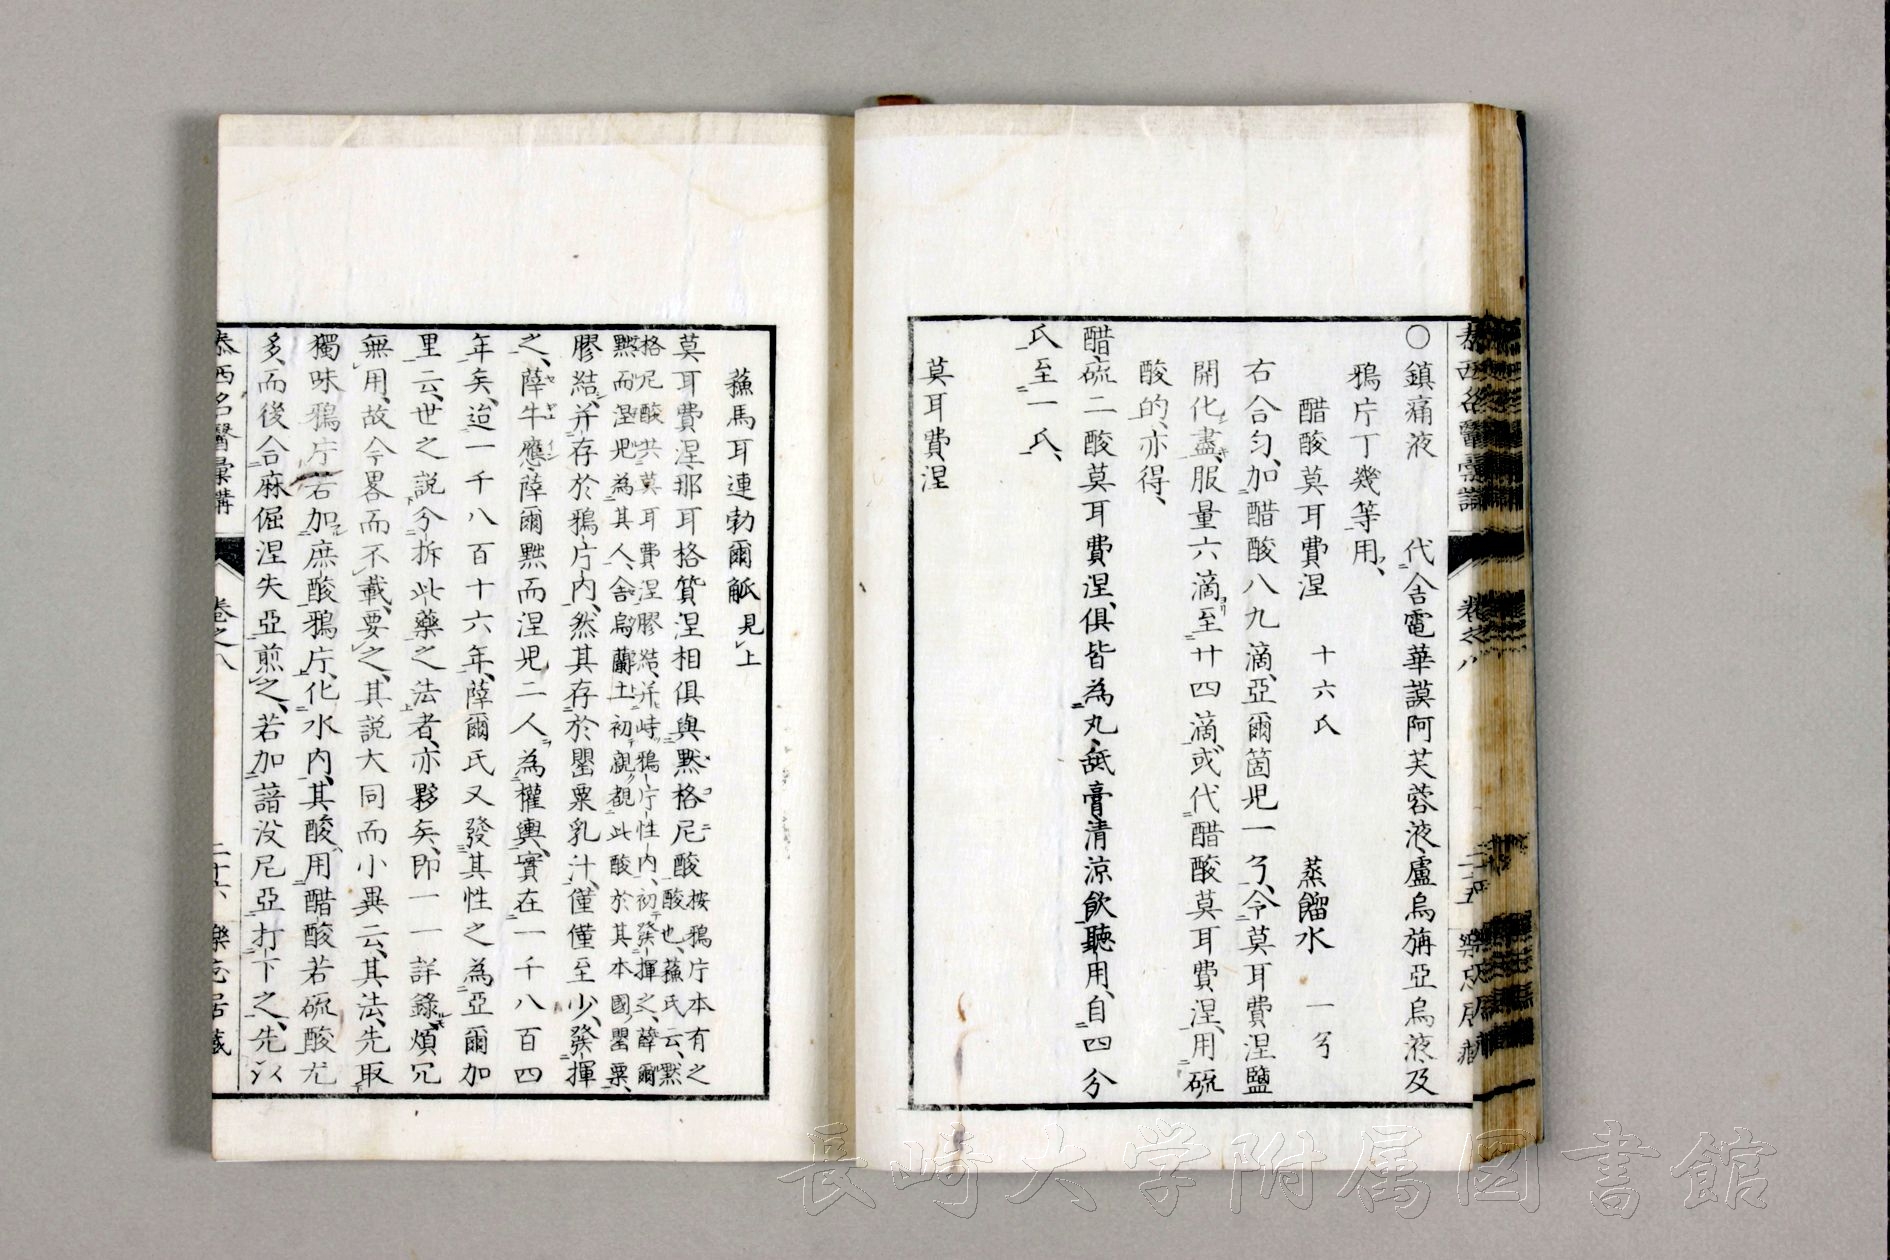 泰西名醫彙講
卷之八
二十五
樂志居藏
〇鎮痛液
代舎電華謨阿芙蓉液盧烏旃亞烏液及
鴉片丁幾等用、
醋酸莫耳費涅 十六氏 蒸餾水 一兮
右合匀、加醋酸八九滴、亞爾箇児一兮、令莫耳費涅鹽
開化盡、服量六滴至廿四滴、或代醋酸莫耳費涅、用硫
酸的、亦得、
醋硫二酸莫耳費涅、俱皆為丸、䑛膏清涼飲聽用、自四分
氏至一氏、
莫耳費涅
蘓馬耳連勃爾觚 見上
莫耳費涅那耳格質涅相俱與黙格尼酸 按鴉片本有之
酸也、蘓氏云、黙
格尼酸共莫耳費涅膠結、并峙鴉片性内、初發揮之、薛爾
黙而涅児為其人、舎烏蘭土初親覩此酸於其本國罌粟、
膠結、并存於鴉片内、然其存於罌粟乳汁、僅僅至少、發揮
之、薛牛應薛爾黙而涅児二人為權輿、實在一千八百四
年矣、迨一千八百十六年、薛爾氏又發其性之為亞爾加
里云、世之説分拆此藥之法者、亦夥矣、即一一詳錄、煩冗
無用、故今畧而不載、要之、其説大同而小異云、其法、先取
獨味鴉片、若加庶酸鴉片、化水内、其酸用醋酸若硫酸尤
多、而後合麻倔涅失亞煎之、若加諳没尼亞打下之、先以
泰西名醫彙講
卷之八
二十六
樂志居藏
長崎大学附属図書館